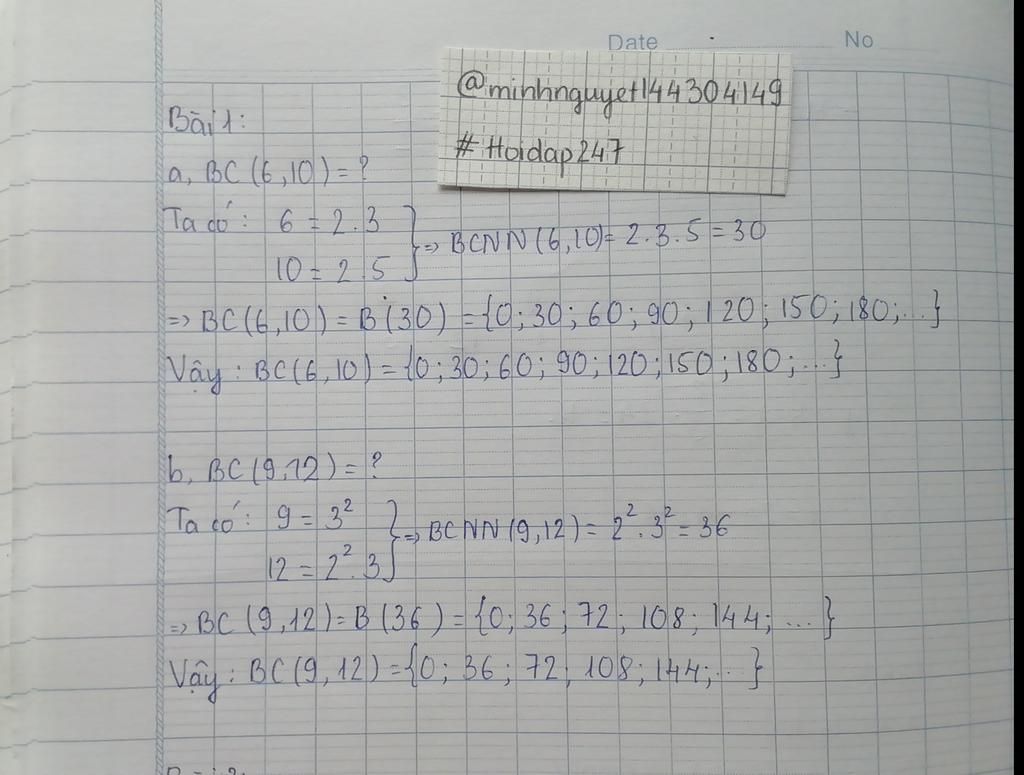 Date No
@minhnguyet144304149
# Hoidap247
Bài 1:
a, BC (6,10) = ?
Ta có: 6 = 2.3
10 = 2.5
} => BCNN (6,10) = 2.3.5 = 30
=> BC (6,10) = B (30) = {0; 30; 60; 90; 120; 150; 180; ...}
Vậy: BC (6,10) = {0; 30; 60; 90; 120; 150; 180; ...}
b, BC (9,12) = ?
Ta có: 9 = 3²
12 = 2².3
} => BCNN (9,12) = 2².3² = 36
=> BC (9,12) = B (36) = {0; 36; 72; 108; 144; ...}
Vậy: BC (9,12) = {0; 36; 72; 108; 144; ...}